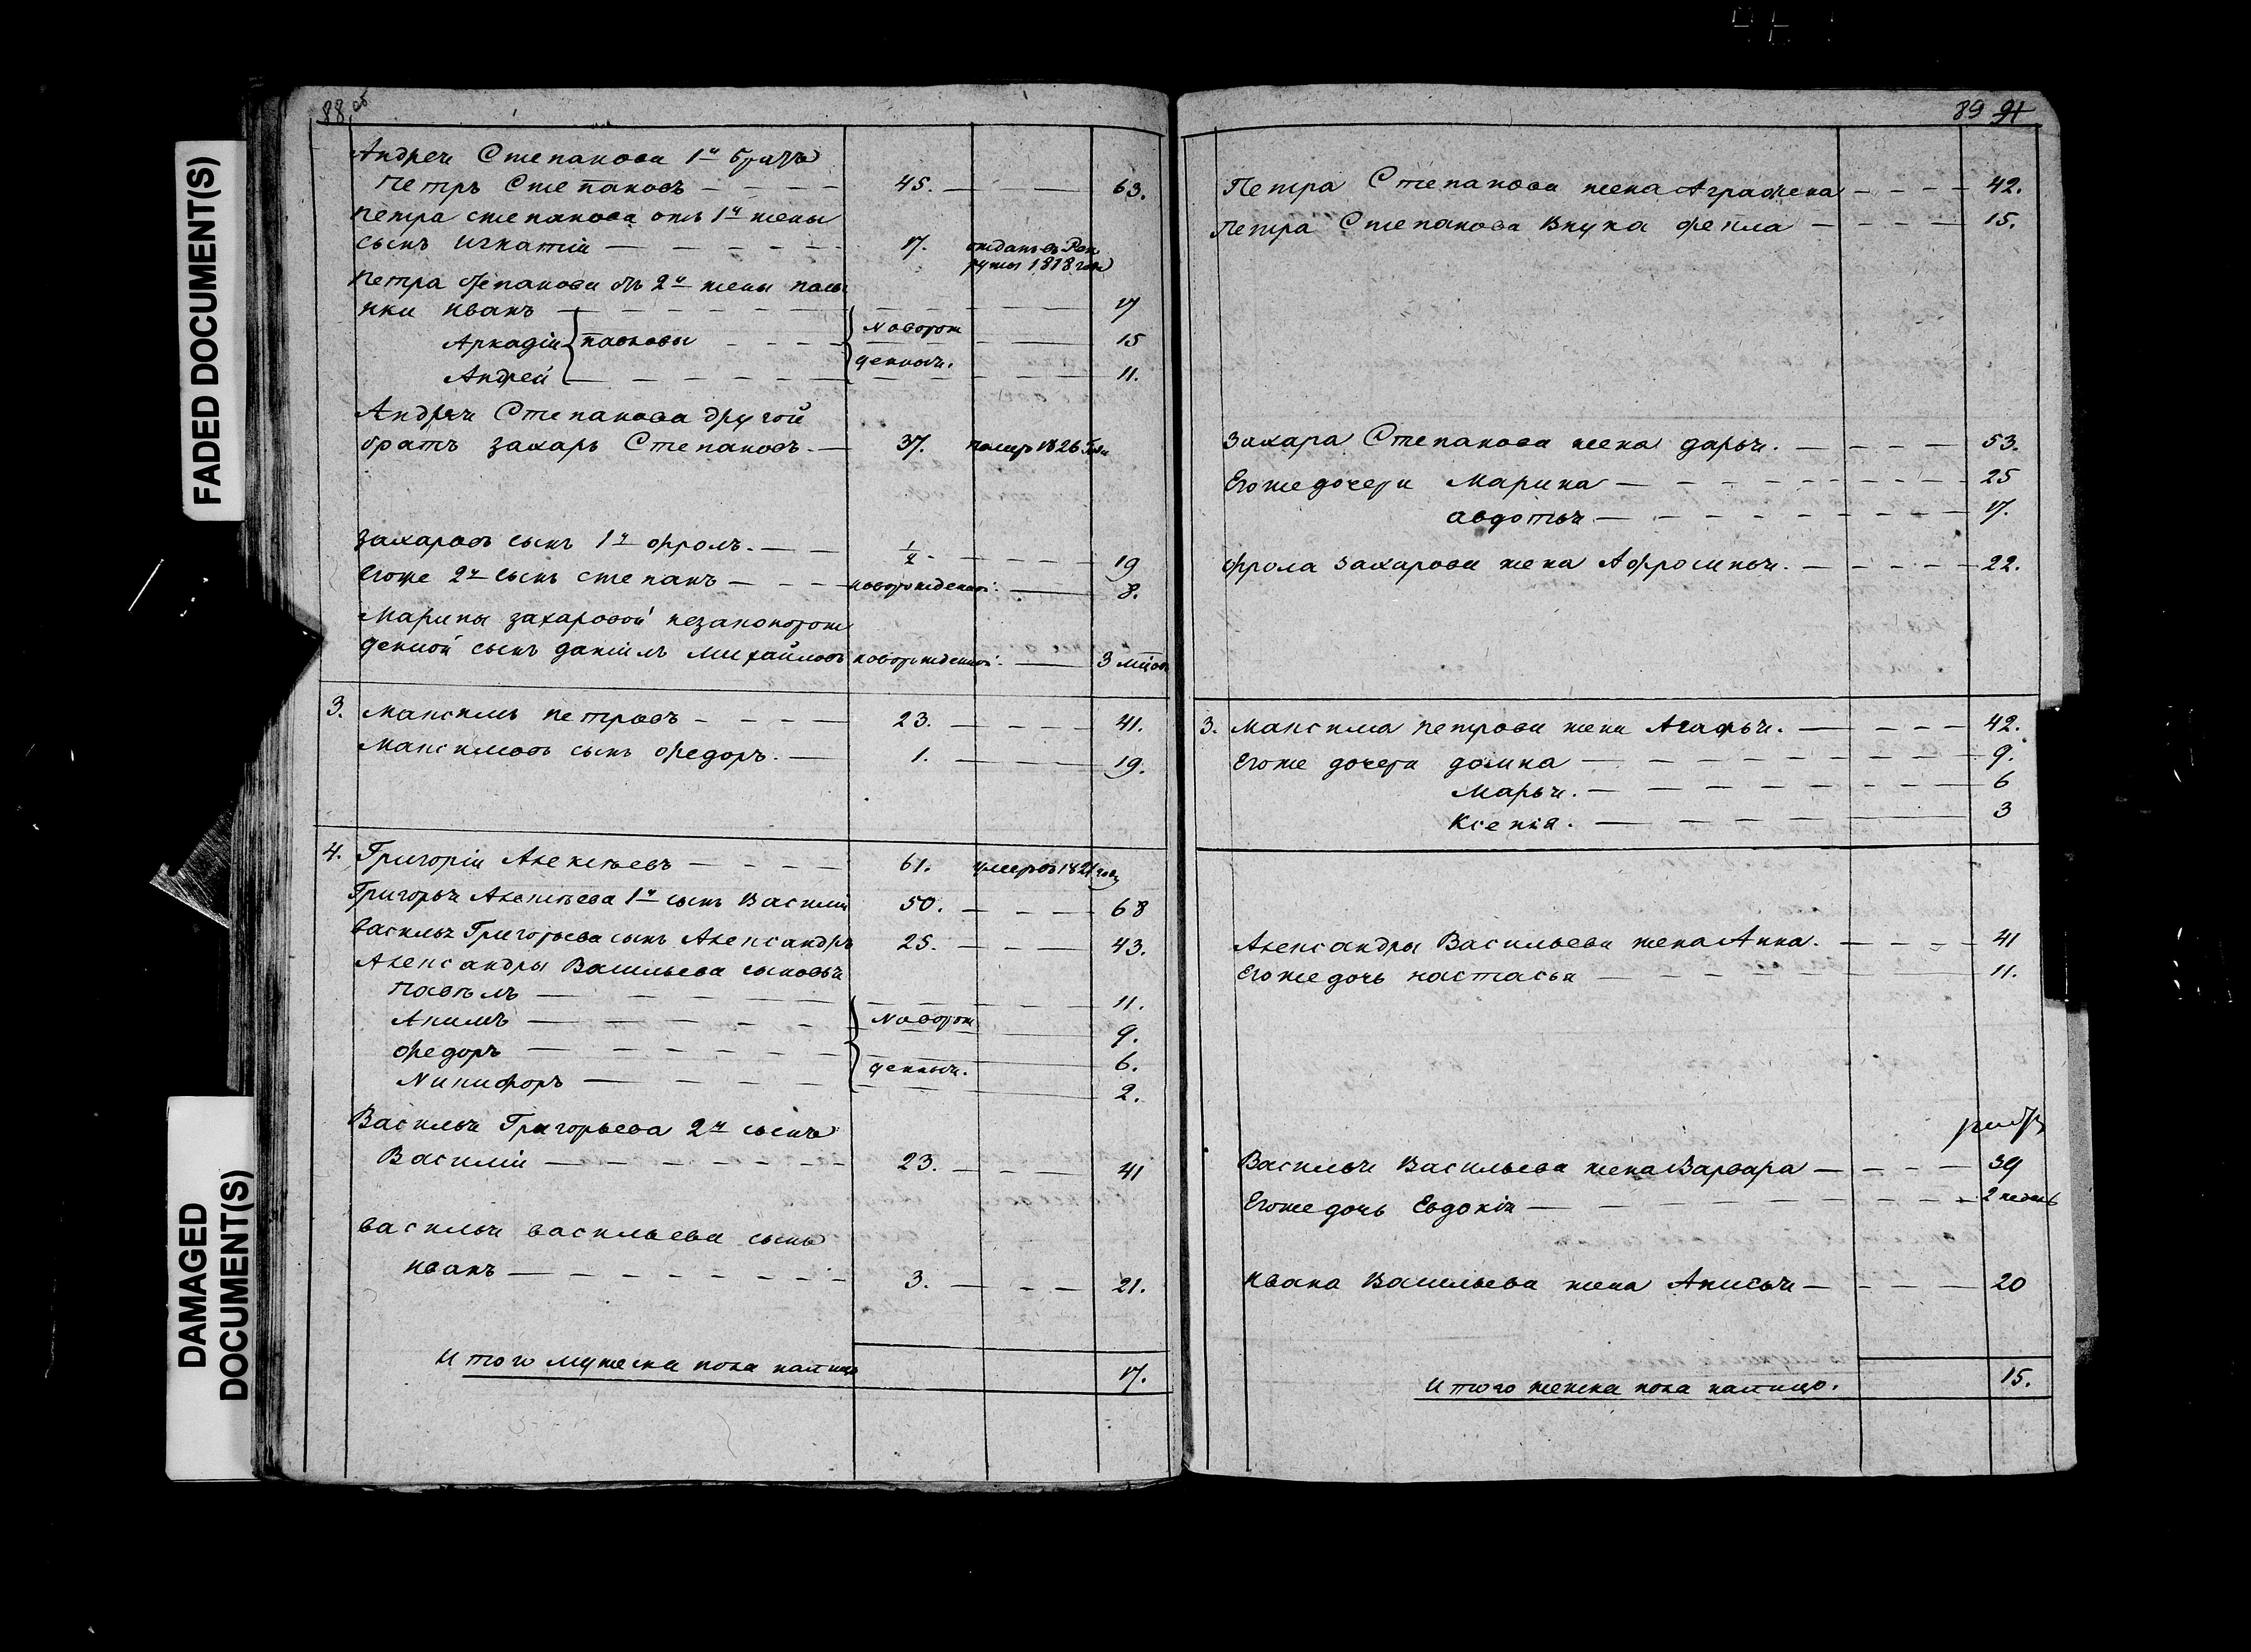 88 об
Андрея Степанова 1й братъ
Петръ Степановъ 45. 63.
Петра степанова отъ 1й жены
сынъ Игнатiй 17. отданъ въ Рек
руты 1818 года
Петра Степанова отъ 2й жены
нки Иванъ 17
Аркадiй Новорож 15
Андрей денныя. 11.
Андрея Степанова другой
братъ захаръ Степановъ. 37. помер 1826 Года
захаровъ сынъ 1й фролъ. 19
Егоже 2й сынъ степанъ новорожденной. 8.
Марины захаровой незаконорож
денной сынъ данiилъ Михайловъ новорожденной. 3 мцов
3. Максимъ петровъ 23. 41.
Максимовъ сынъ федоръ. 1. 19.
4. Григорiй Алексѣевъ 61. умеръ въ 1821 году
Григорья Алексѣева 1й сынъ Василiй 50. 68
Василья Григорьева сынъ Александръ 25. 43.
Александры Васильева сыновья
Павѣлъ 11.
Акимъ Новорож 9.
федоръ 6.
Никифоръ денныя. 2.
Василья Григорьева 2й сынъ
Василiй 23. 41
василья васильева сынъ
иванъ 3. 21.
Итого мужеска пола налицо 17.
89 91
Петра Степанова жена Аграфена 42.
Петра Степанова Внука фекла 15.
Захара Степанова жена дарья. 53.
Егоже дочери Марина 25
авдотья 17.
фрола Захарова жена Афросинья. 22.
3. Максима петрова жена Агафья. 42.
Егоже дочери домна 9.
Марья. 6
Ксенiя. 3
Александры Васильева жена Анна. 41
Егоже дочь настасья 11.
Василья Васильева жена Варвара 39
Егоже дочь Евдокiя 2 недель
Ивана Васильева жена Анисья 20
Итого женска пола налицо. 15.
FADED DOCUMENT(S)
DAMAGED
DOCUMENT(S)